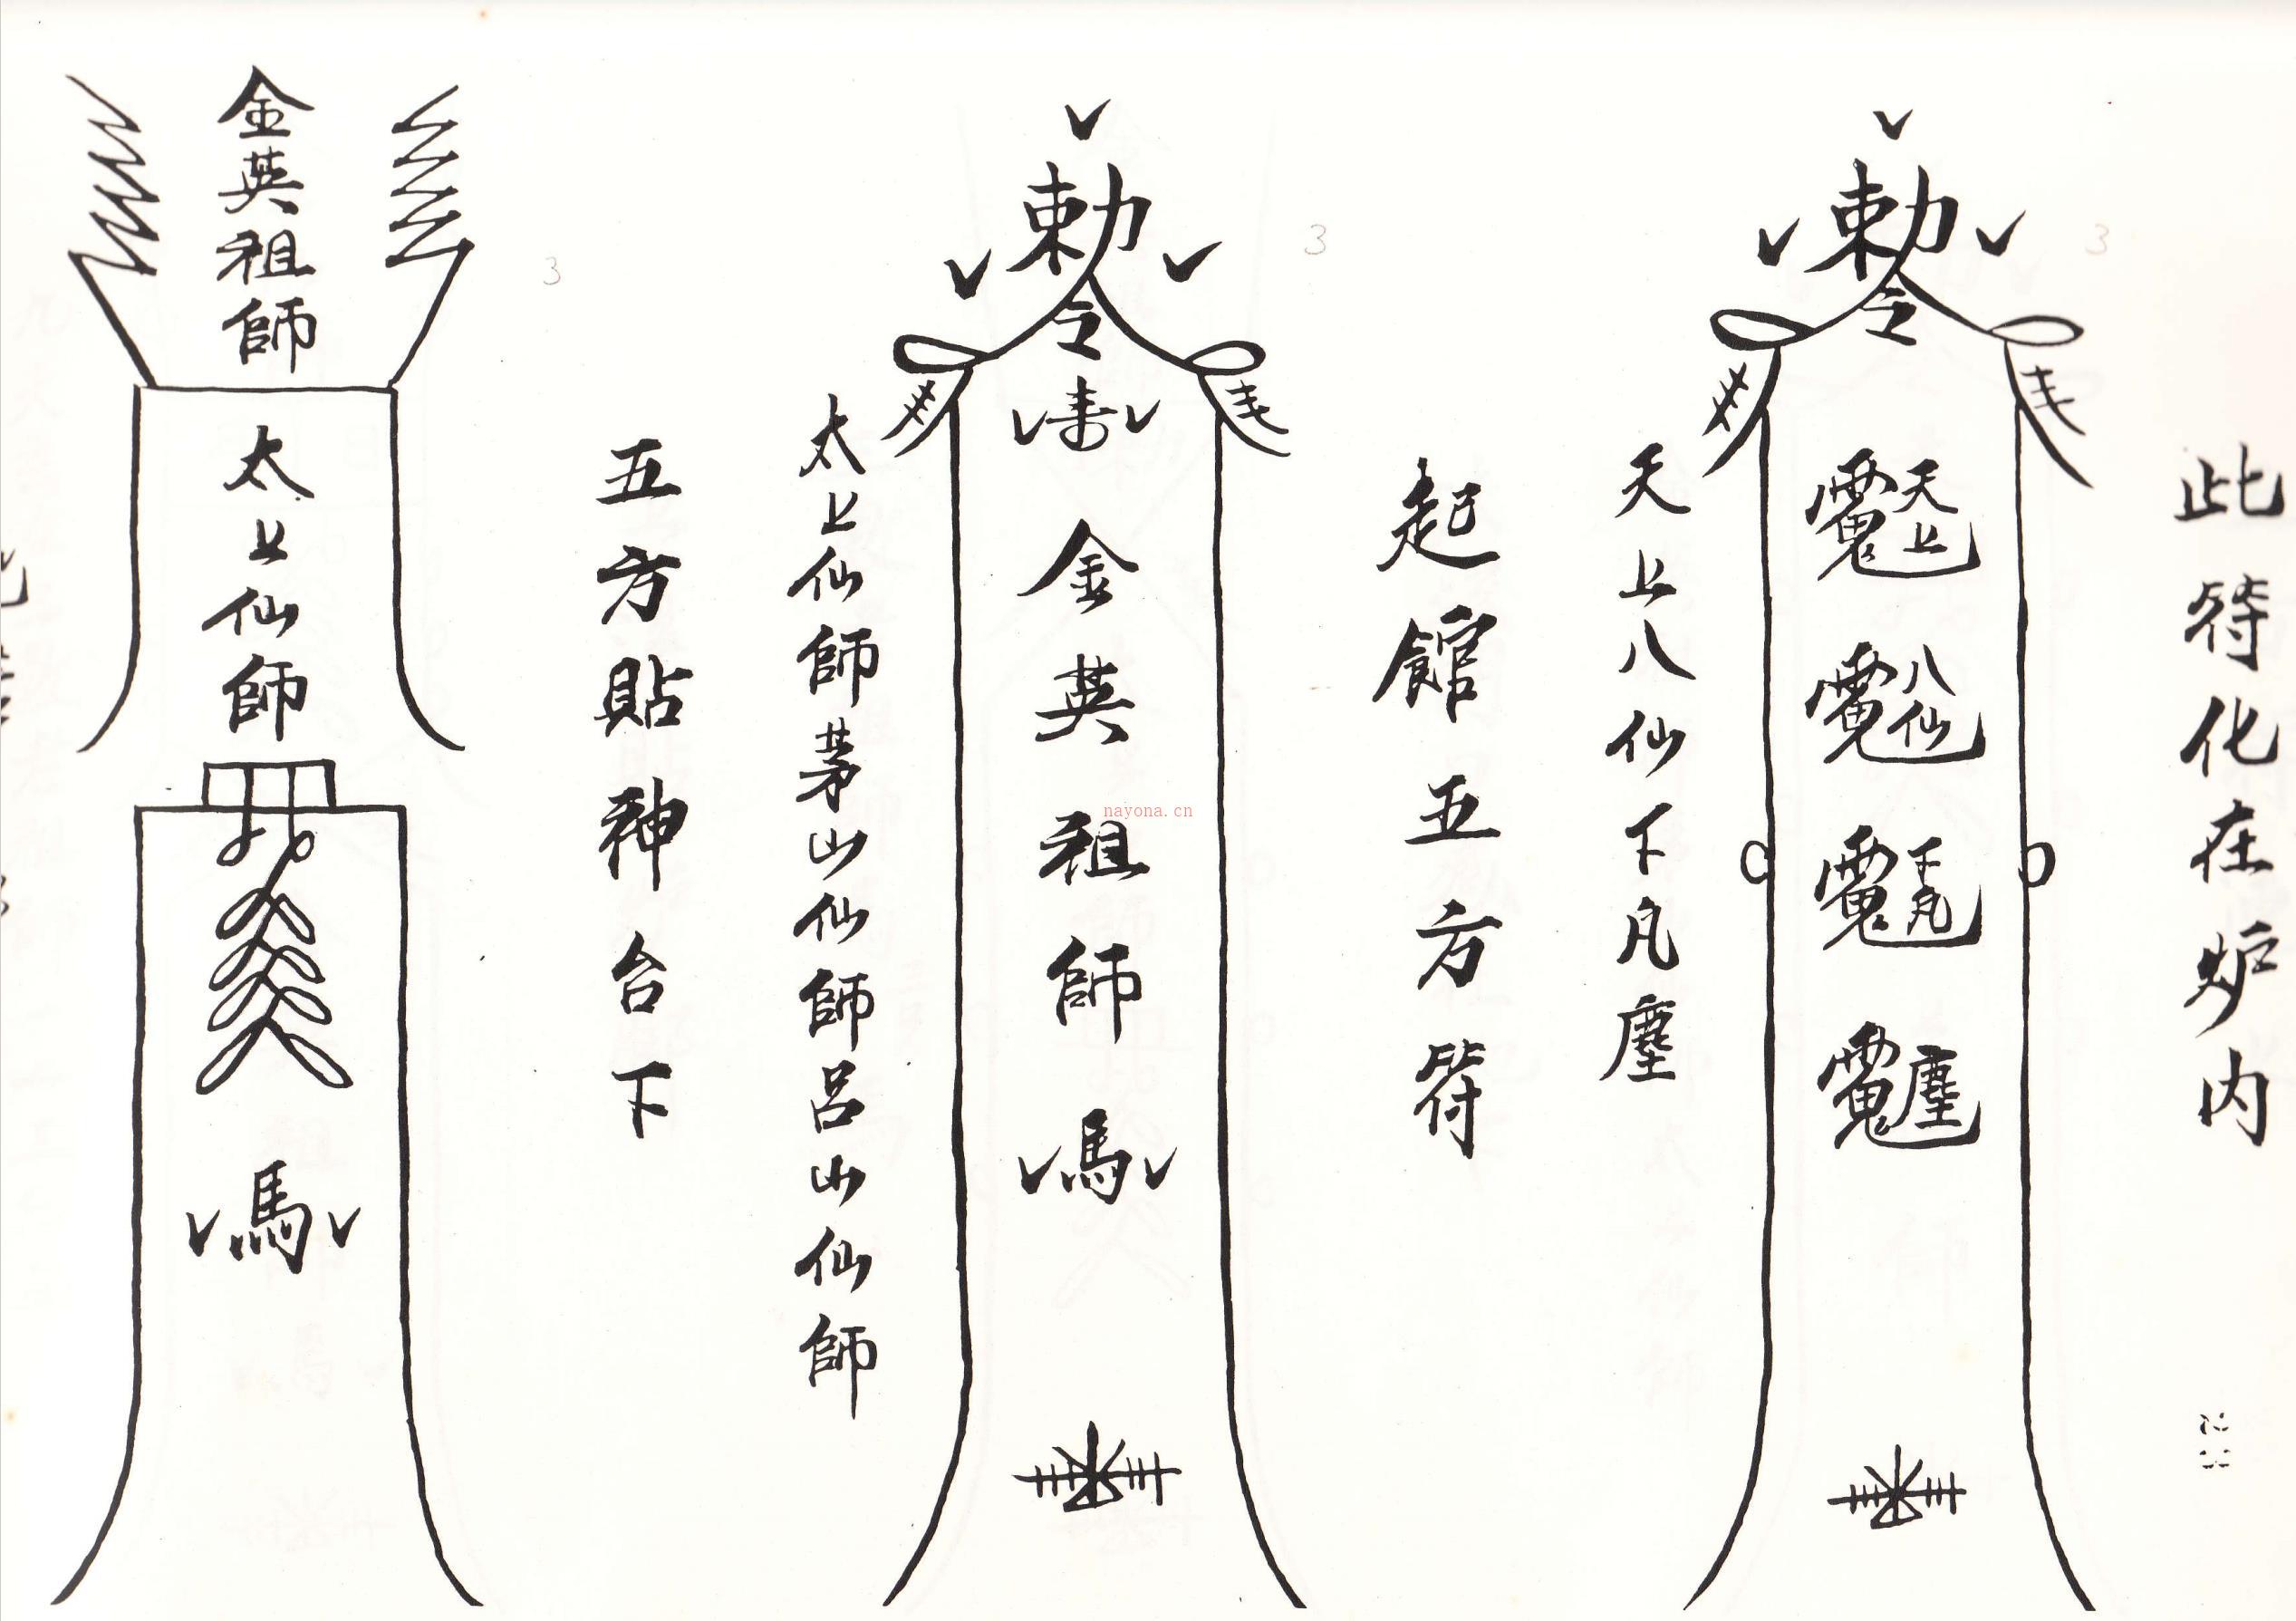 此符化在炉内
勅令
天上
八仙
下凡
塵
天上八仙下凡塵
起館五方符
勅令
金英祖師
馬
太上仙師茅山仙師呂山仙師
五方貼神台下
金英祖師
太上仙師
馬
3
3
3
nayona.cn